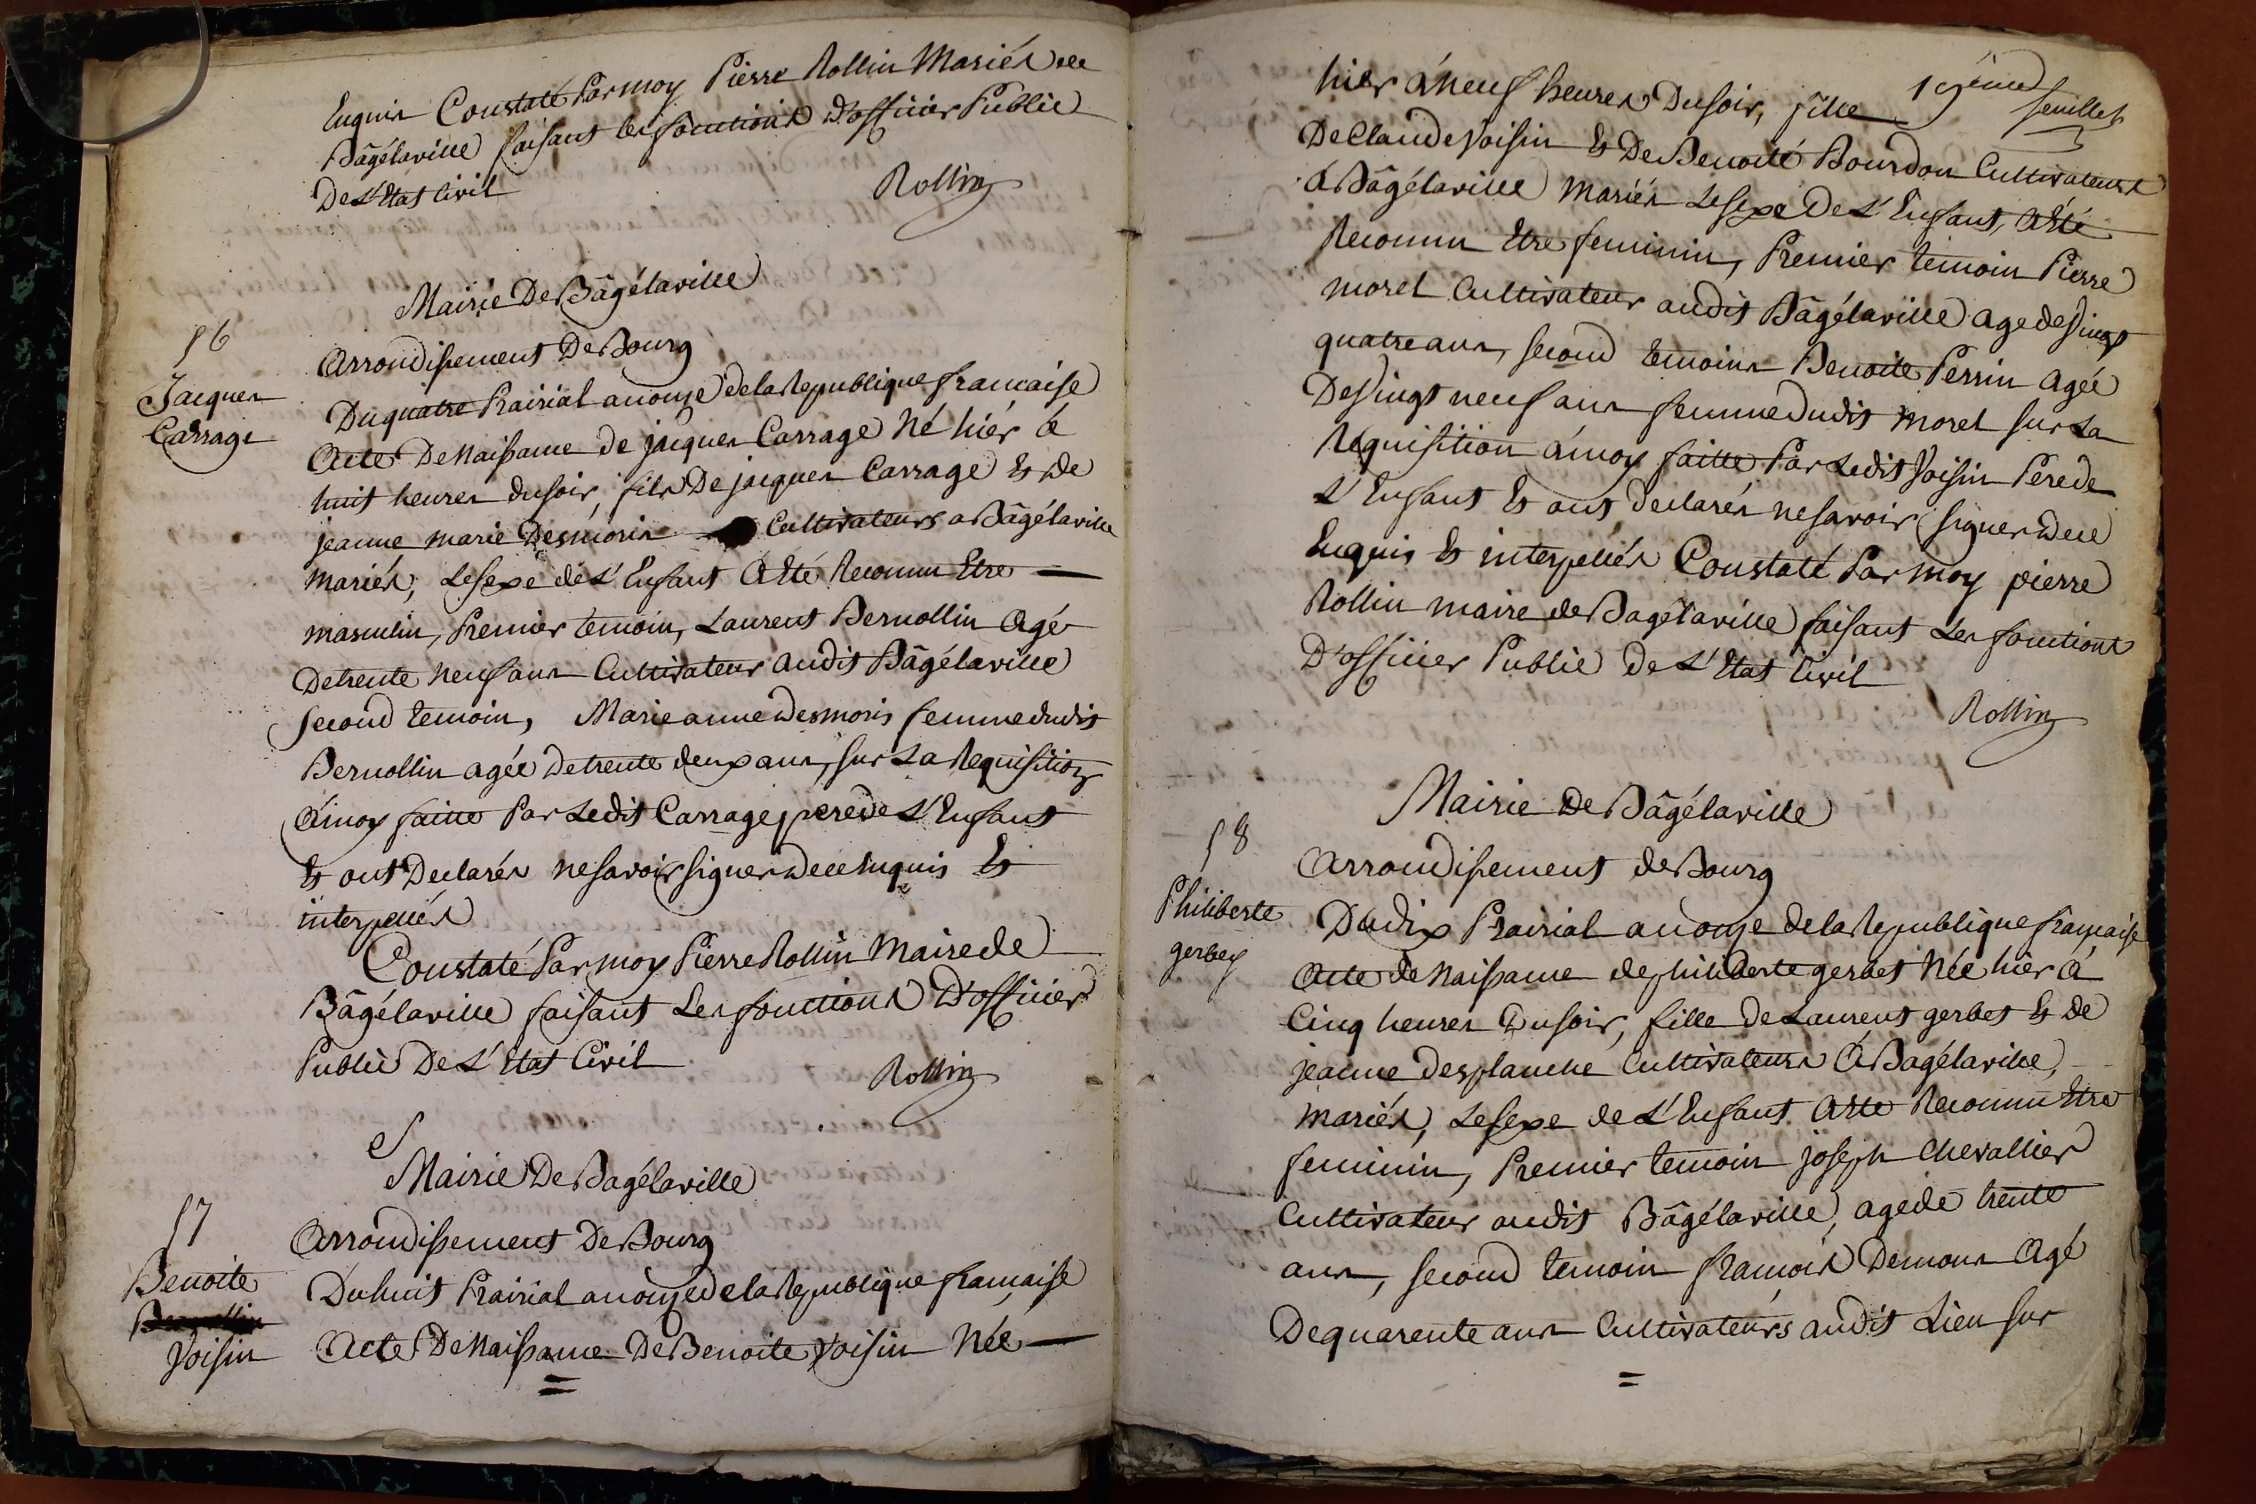 Enquis Constaté Par moy Pierre Rollin Mariés de
Bâgélaville faisant les fonctions d'officier Public
De L'Etat Civil
Rollin
Mairie De Bâgélaville
56
Jacques
Carrage
arrondissement De Bourg
Du quatre Prairial an onze de la Republique francaise
Acte De Naissance de jacques Carrage Né hiér á
huit heures du soir, fils De jacques Carrage Et de
jeanne marie Desmoris Cultivateurs a Bâgélaville
mariés, Le sexe de L'Enfant A Eté Reconnu Etre
masculin, Premier temoin, Laurent Bernollin Agé
De trente neuf ans Cultivateur audit Bâgélaville
second temoin, Marie anne desmoris femme dudit
Bernollin agée De trente deux ans, sur La Requisition
á moy faitte Par Ledit Carrage pere de L'Enfant
Et ont Declarés ne savoir signer de ce Enquis Et
interpellés
Constaté Par moy Pierre Rollin Maire de
Bâgélaville faisant Les fonctions D'officier
Public De L'Etat Civil
Rollin
Mairie De Bagélaville
57
Benoite
Voisin
Arrondissement De Bourg
Du huit Prairial an onze de la Republique française
Acte De Naissance De Benoite Voisin Née
=
feuillet
hier á neuf heures Du soir, fille
De Claude Voisin Et De Benoite Bourdon Cultivateurs
á Bâgélaville mariés Le sexe De L'Enfant, A Eté
Reconnu Etre feminin, Premier temoin Pierre
morel Cultivateur audit Bâgélaville age de Vingt
quatre ans, second temoins Benoite Perrin agée
De Vingt neuf ans femme Dudit morel sur La
Requisition á moy faitte Par Ledit Voisin Pere de
L'Enfant Et ont declarés ne savoir signer de ce
Enquis Et interpellés Constaté Par moy pierre
Rollin maire de Bagélaville faisant Les fonctions
D'officier Public De L'Etat Civil
Rollin
Mairie De Bâgélaville
58
Philiberte
gerbey
Arrondissement de Bourg
Du dix Prairial an onze de la Republique française
Acte de Naissance de philiberte gerbet Née hier á
Cinq heures Du soir, fille de Laurent gerbet Et de
jeanne desplanche Cultivateurs á Bagélaville,
mariés, Le sexe de L'Enfant A Eté Reconnu Etre
feminin, Premier temoin joseph Chevallier
Cultivateur audit Bâgélaville, age de trente
ans, second temoin francois Demons Agé
De quarente ans Cultivateurs audit Lieu sur
=